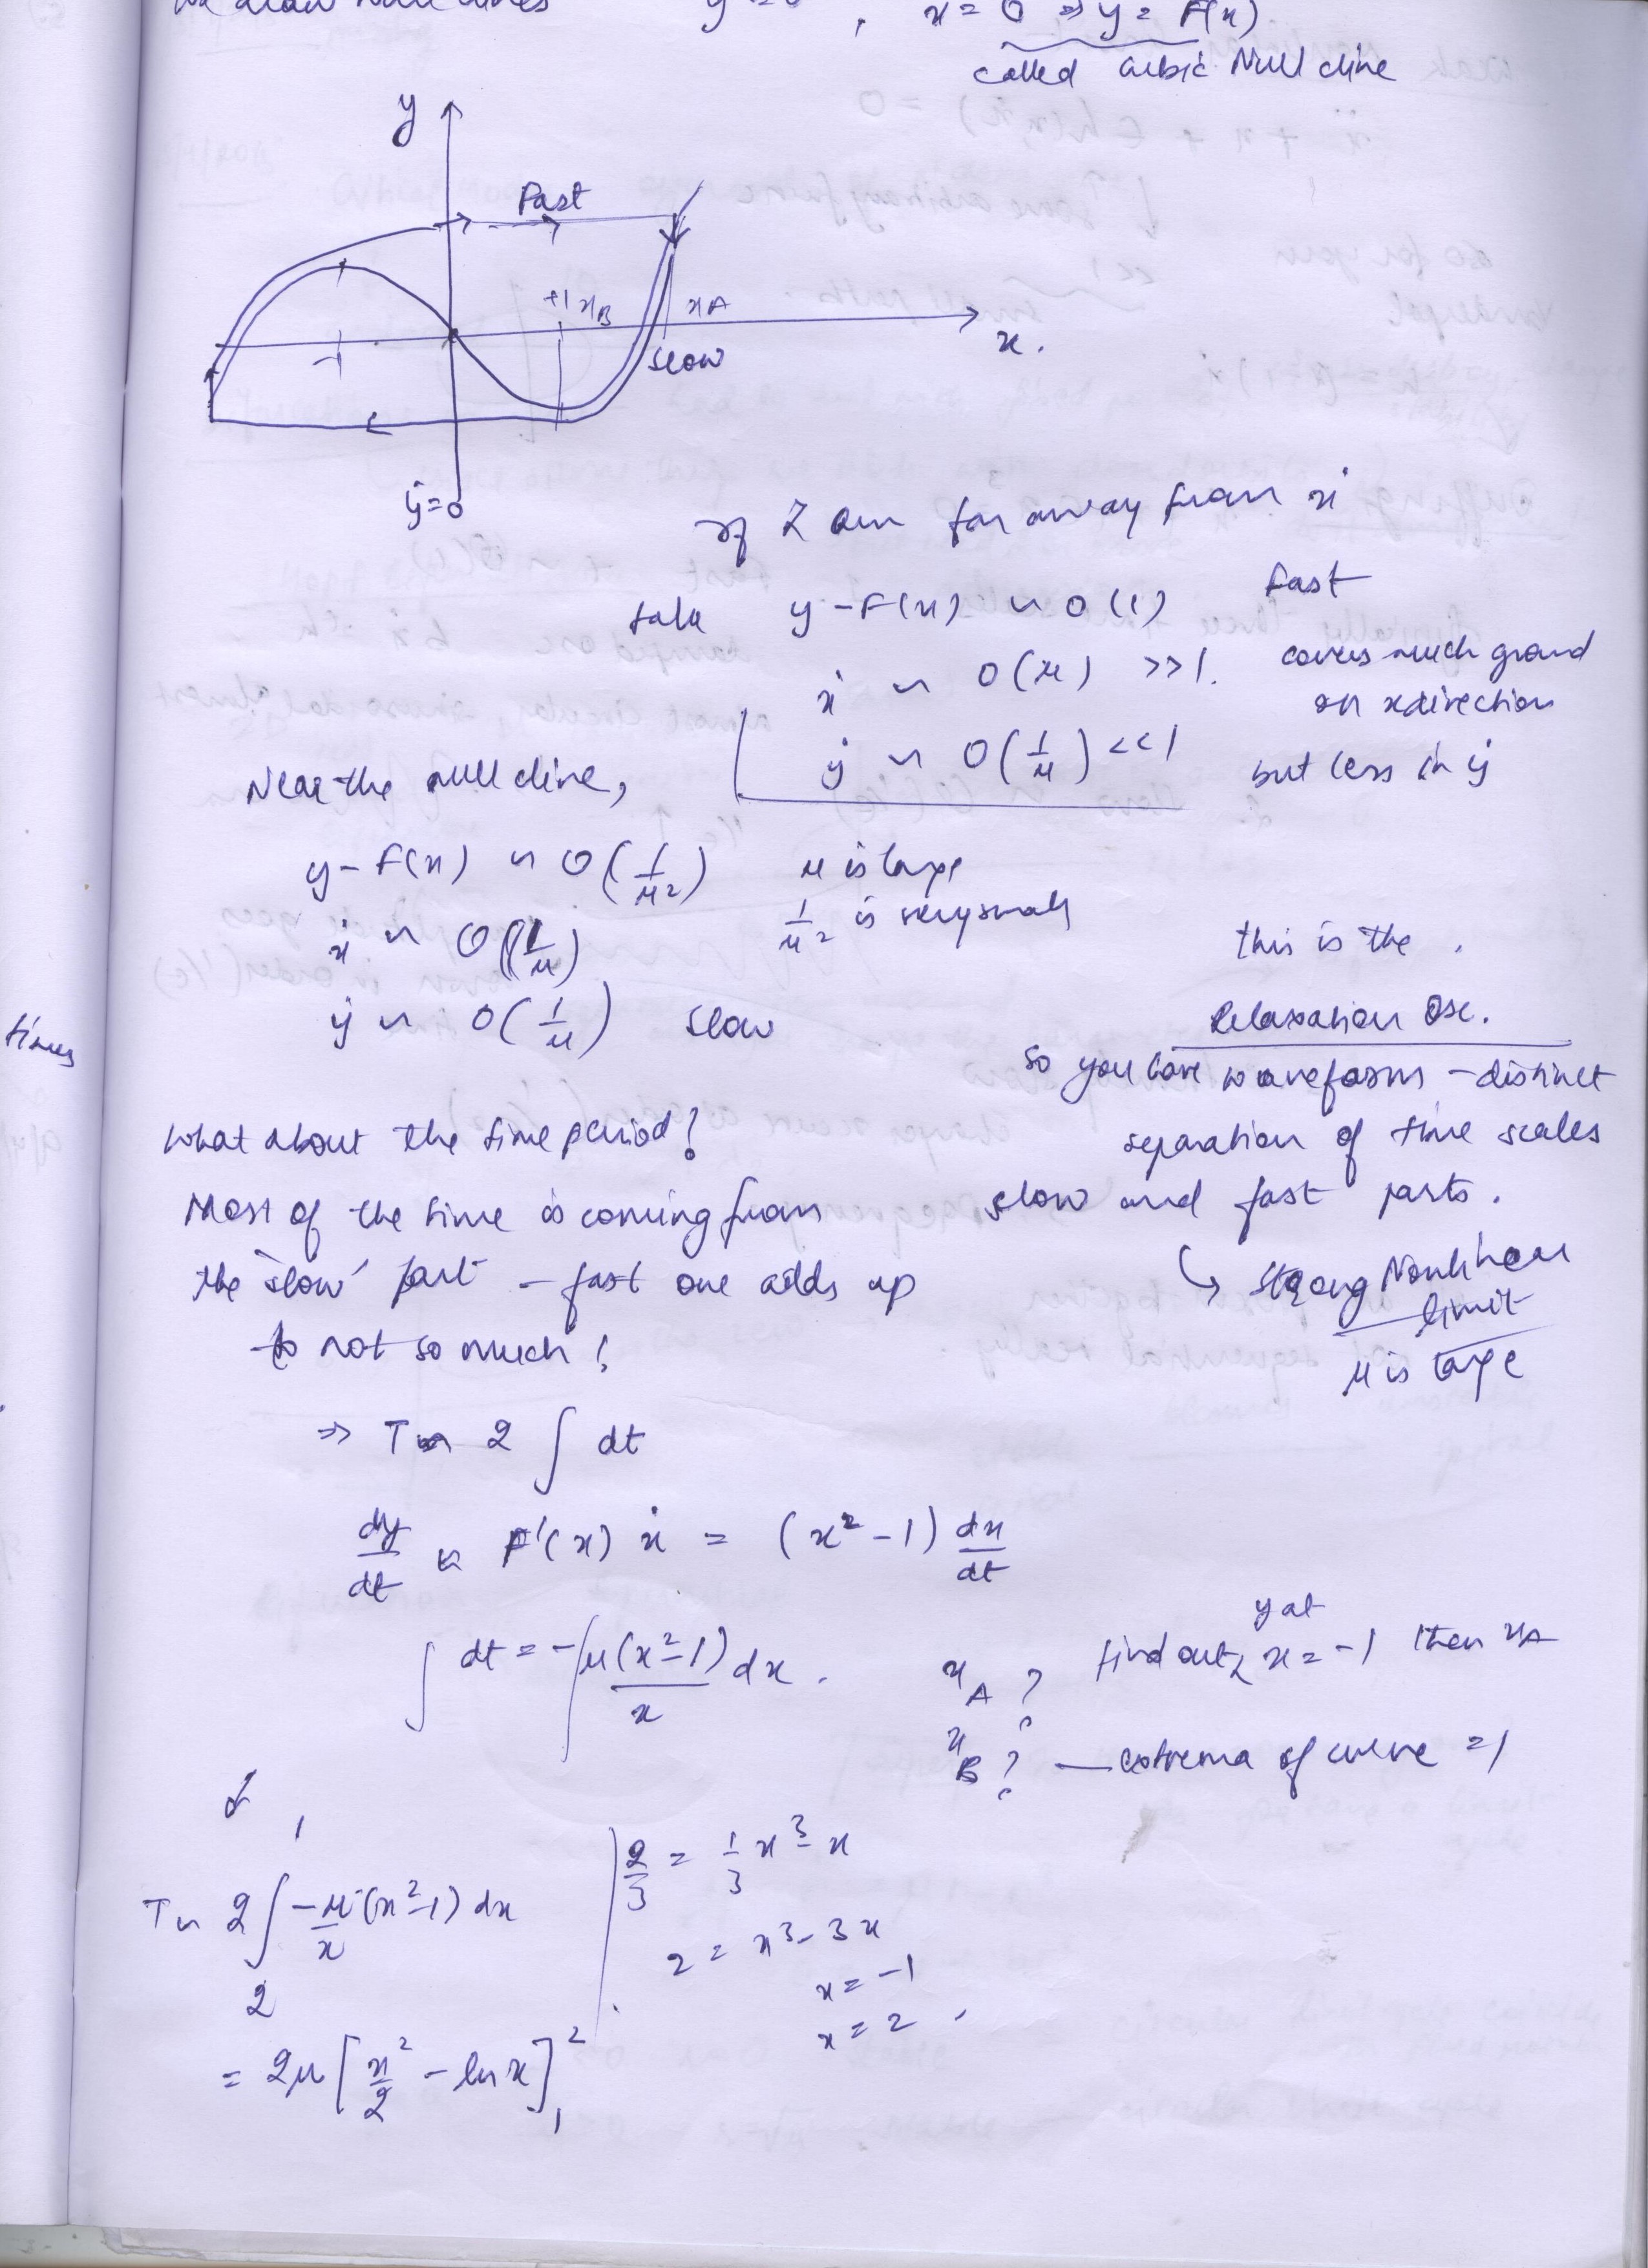 we draw Null clines ẏ = 0 , ẋ = 0 ⇒ y = F(x)
called cubic Null cline
y
Fast
+1 xB xA
-1
slow
x.
ẏ=0
If I am far away from ẋ
take y-F(x) ~ O(1) fast
ẋ ~ O(μ) >>1. covers much ground
on x direction
ẏ ~ O(1/μ) <<1 but less in ẏ
Near the null cline,
y-F(x) ~ O(1/μ²) μ is large
1/μ² is very small
ẋ ~ O(1/μ)
ẏ ~ O(1/μ) slow
times
this is the .
Relaxation Osc.
so you have waveforms - distinct
separation of time scales
slow and fast parts.
↳ Strong Nonlinear
limit
μ is large
What about the time period?
Most of the time is coming from
the 'slow' part - fast one adds up
to not so much!
⇒ T ~ 2 ∫ dt
dy/dt ≈ F'(x) ẋ = (x²-1) dx/dt
∫ dt = -∫ μ(x²-1)/x dx .
xA ? find out y at x = -1 then xA
xB ? — extrema of curve = 1
T ~ 2 ∫₂¹ -μ/x (x²-1) dx
= 2μ [x²/2 - ln x]₁²
2/3 = 1/3 x³ - x
2 = x³ - 3x
x = -1
x = 2 .